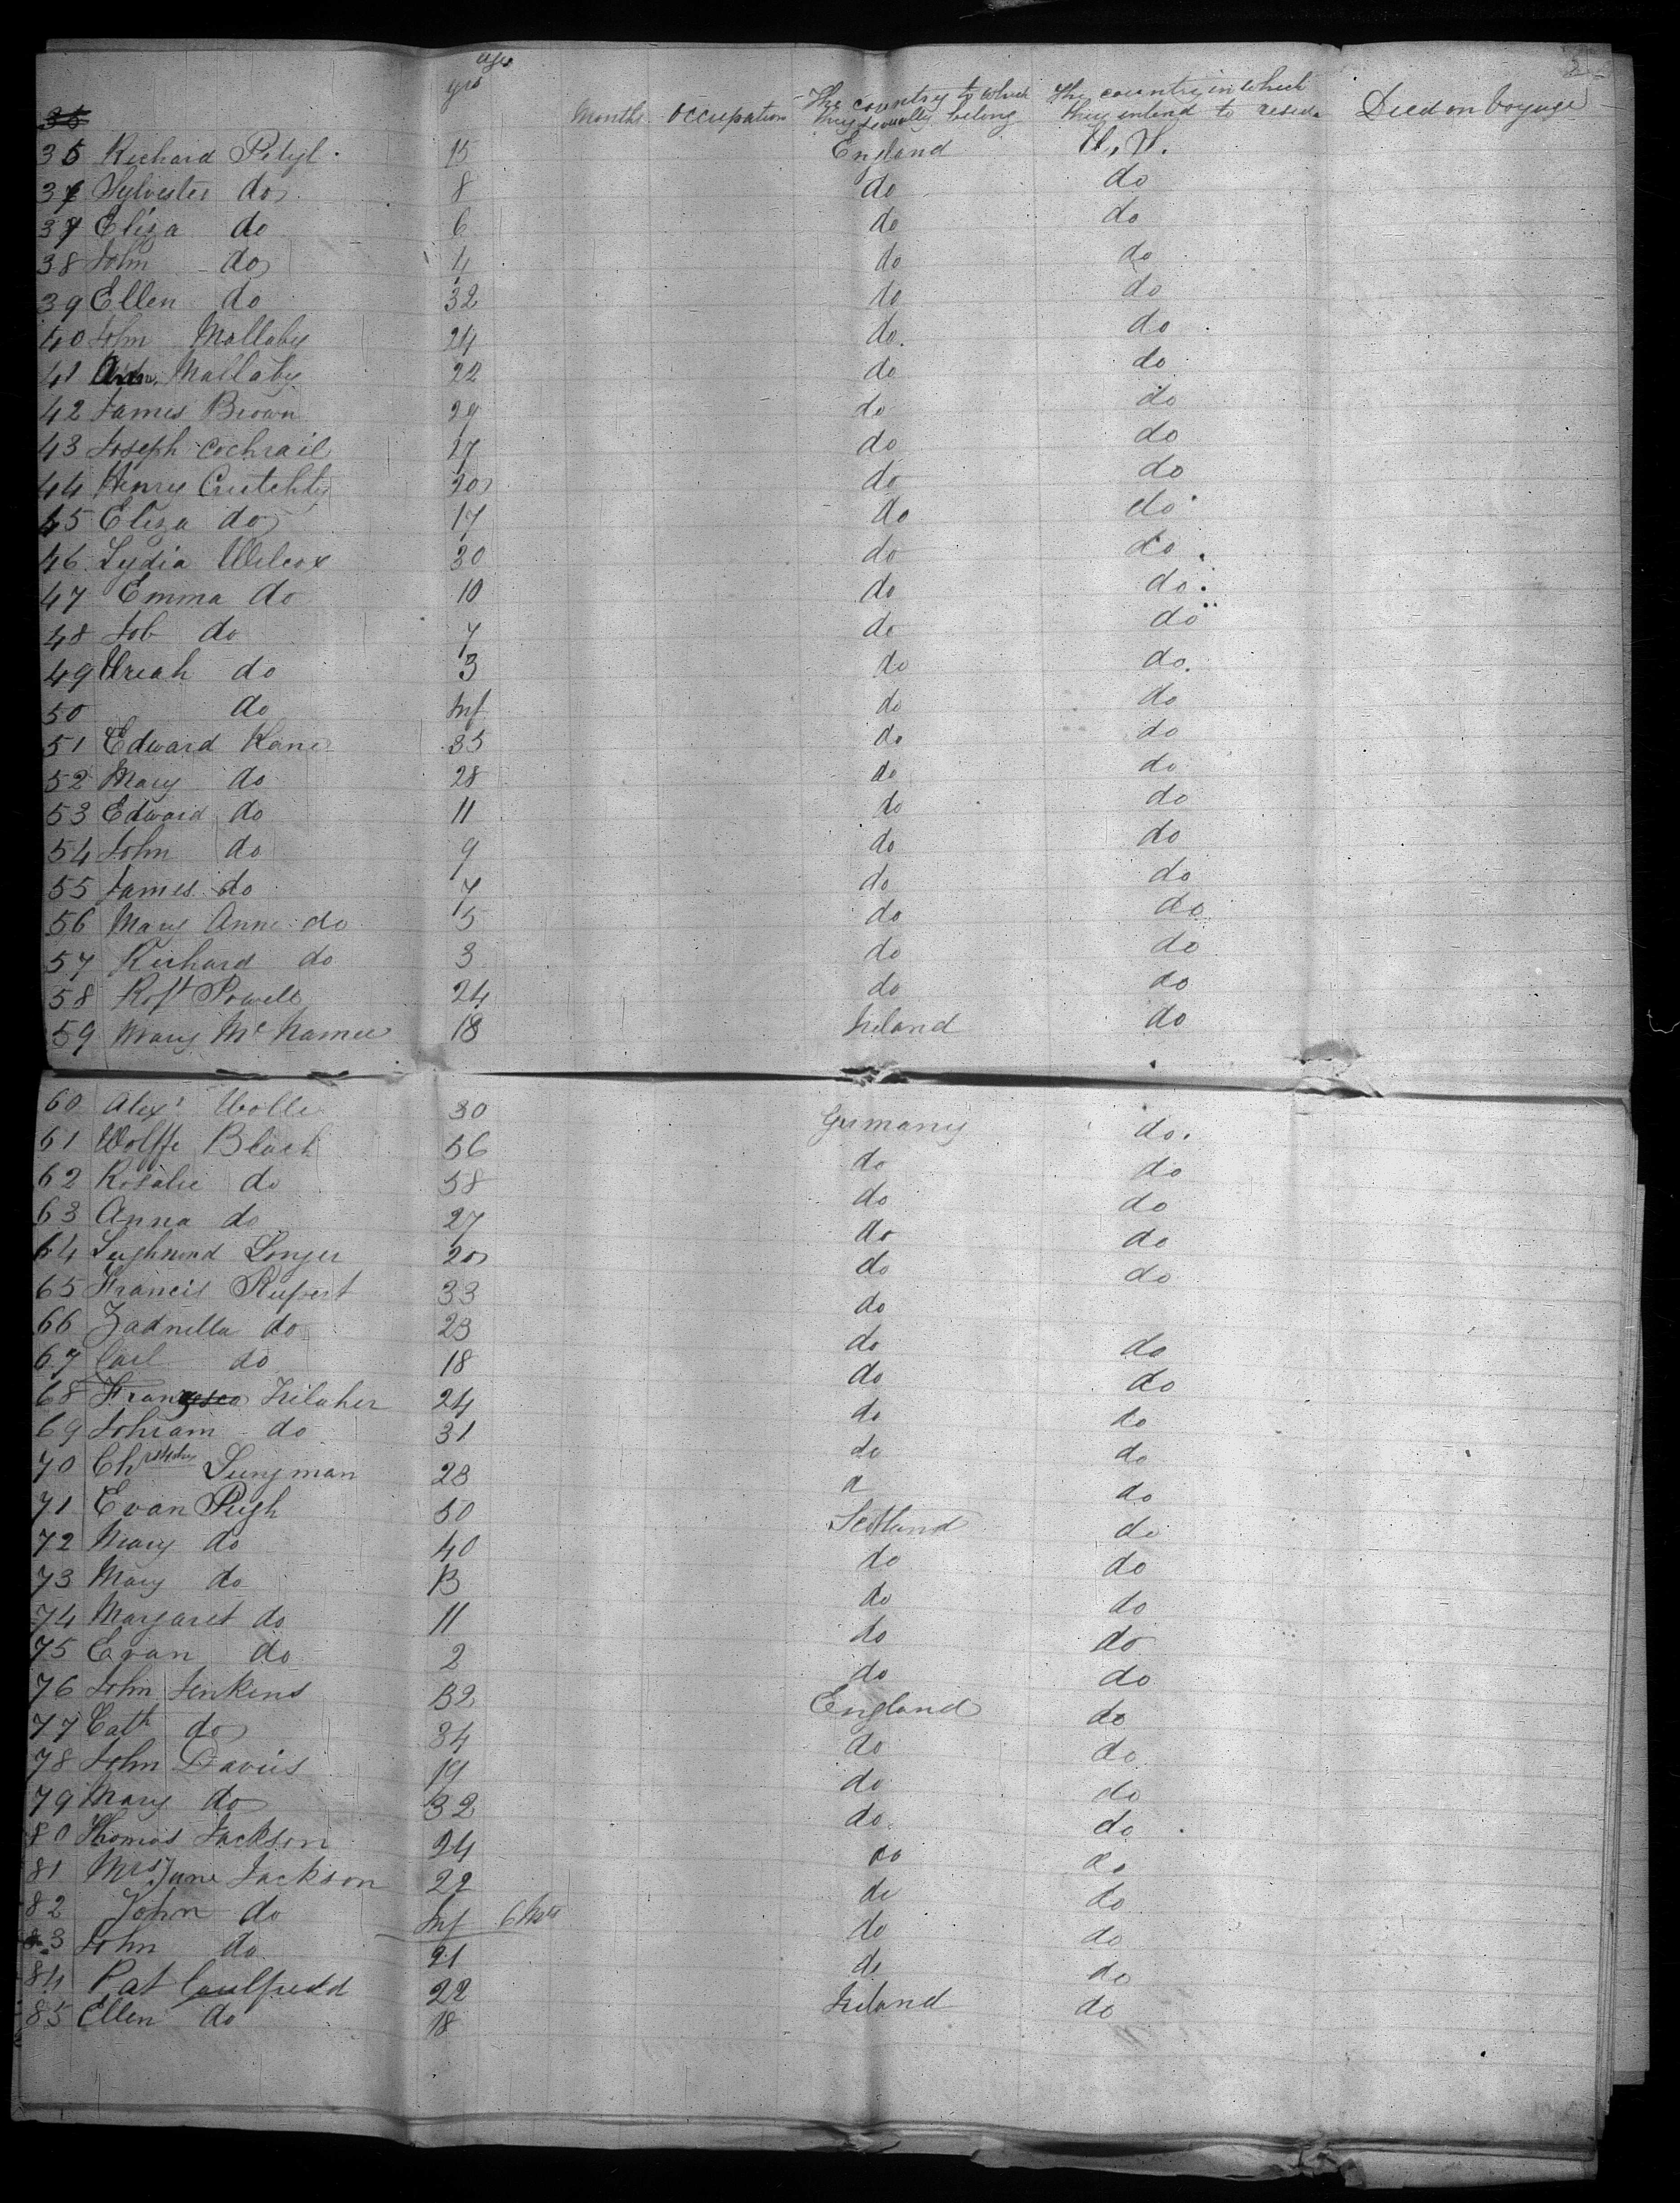 2
Age
yrs Months Occupation The country to which they severally belong The country in which they intend to reside Died on Voyage
35
35 Richard 15 England U.S.
36 Sylvester do 8 do do
37 Eliza do 6 do do
38 John do 4 do do
39 Ellen do 32 do do
40 John Mallaby 24 do. do
41 Ann Mallaby 22 do do
42 James Brown 29 do do
43 Joseph Cochrail 27 do do
44 Henry 20 do do
45 Eliza do 17 do do
46 Lydia Wilcox 30 do do
47 Emma do 10 do do
48 Job do 7 do do
49 Uriah do 3 do do.
50 do Inf do do
51 Edward Kane 35 do do
52 Mary do 28 do do
53 Edward do 11 do do
54 John do 9 do do
55 James do 7 do do
56 Mary Anne do 5 do do
57 Richard do 3 do do
58 Robt Powell 24 do do
59 Mary McNamee 18 Ireland do
60 Alexr 30 Germany do.
61 Wolffe Black 56 do do
62 Rosalie do 58 do do
63 Anna do 27 do do
64 Longer 20 do do
65 Francis Rupert 33 do
66 do 23 do do
67 Carl do 18 do do
68 24 do do
69 do 31 do do
70 23 do
71 Evan Pugh 50 Scotland do
72 Mary do 40 do do
73 Mary do 13 do do
74 Margaret do 11 do do
75 Evan do 2 do do
76 John Jenkins 32 England do
77 Cath do 34 do do
78 John Davies 19 do do
79 Mary do 32 do do
80 Thomas Jackson 24 do do
81 Mrs Jane Jackson 22 do do
82 John do Inf 6 Mos do do
83 John do 21 do do
84 Pat Caulfield 22 Ireland do
85 Ellen do 18